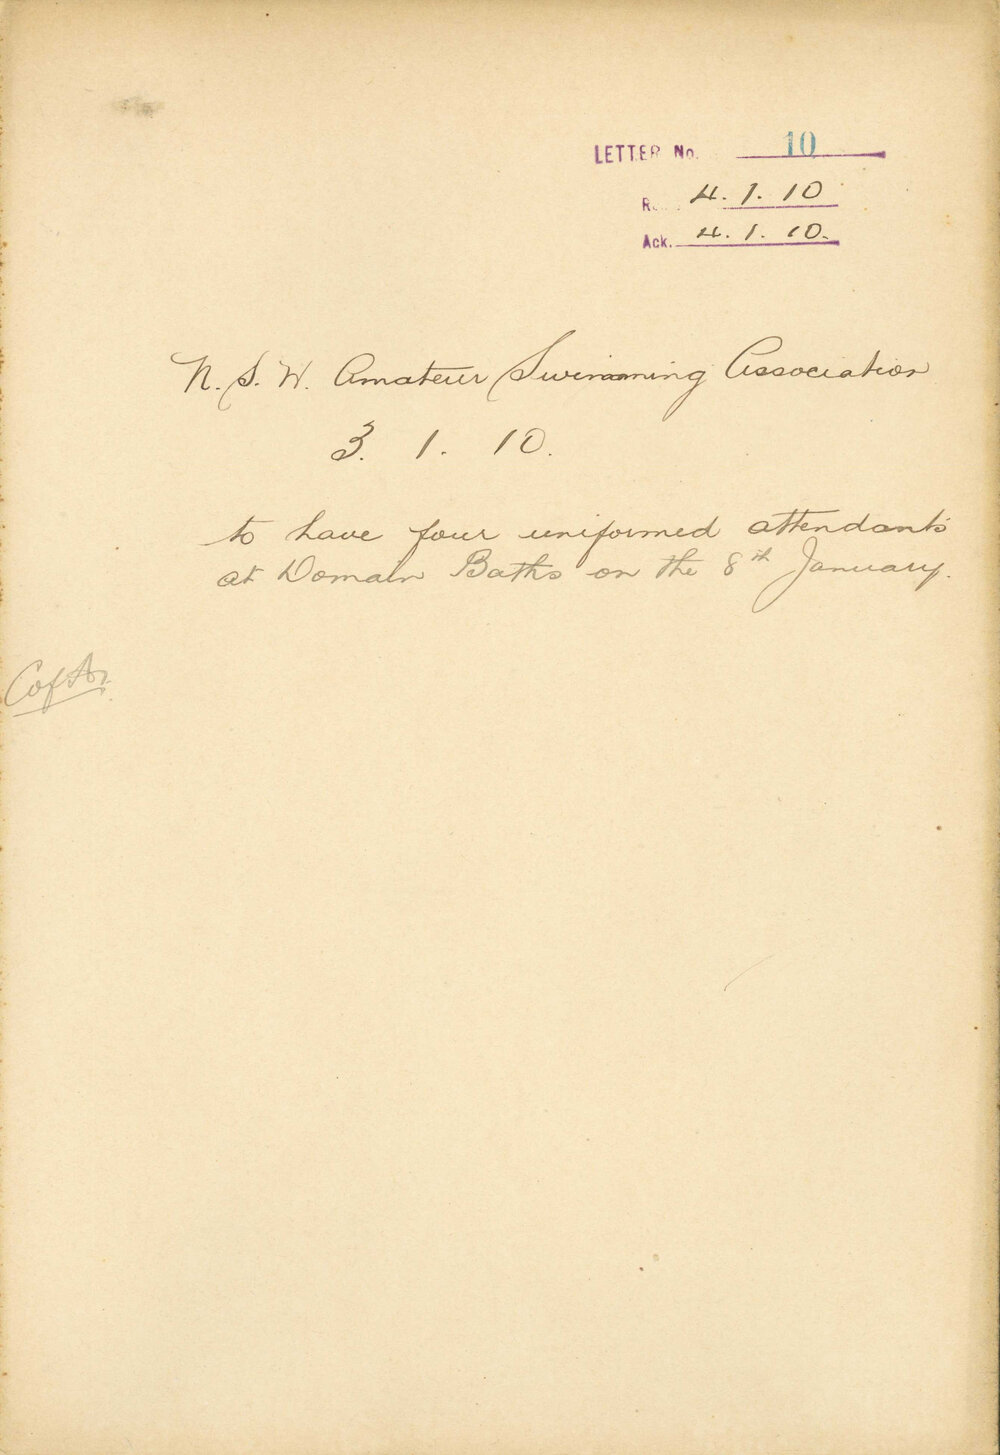 LETTER No. 10
R. 4. 1. 10
Ack. 4. 1. 10.
N. S. W. Amateur Swimming Association
3. 1. 10.
to have four uniformed attendants
at Domain Baths on the 8th January.
C of A.